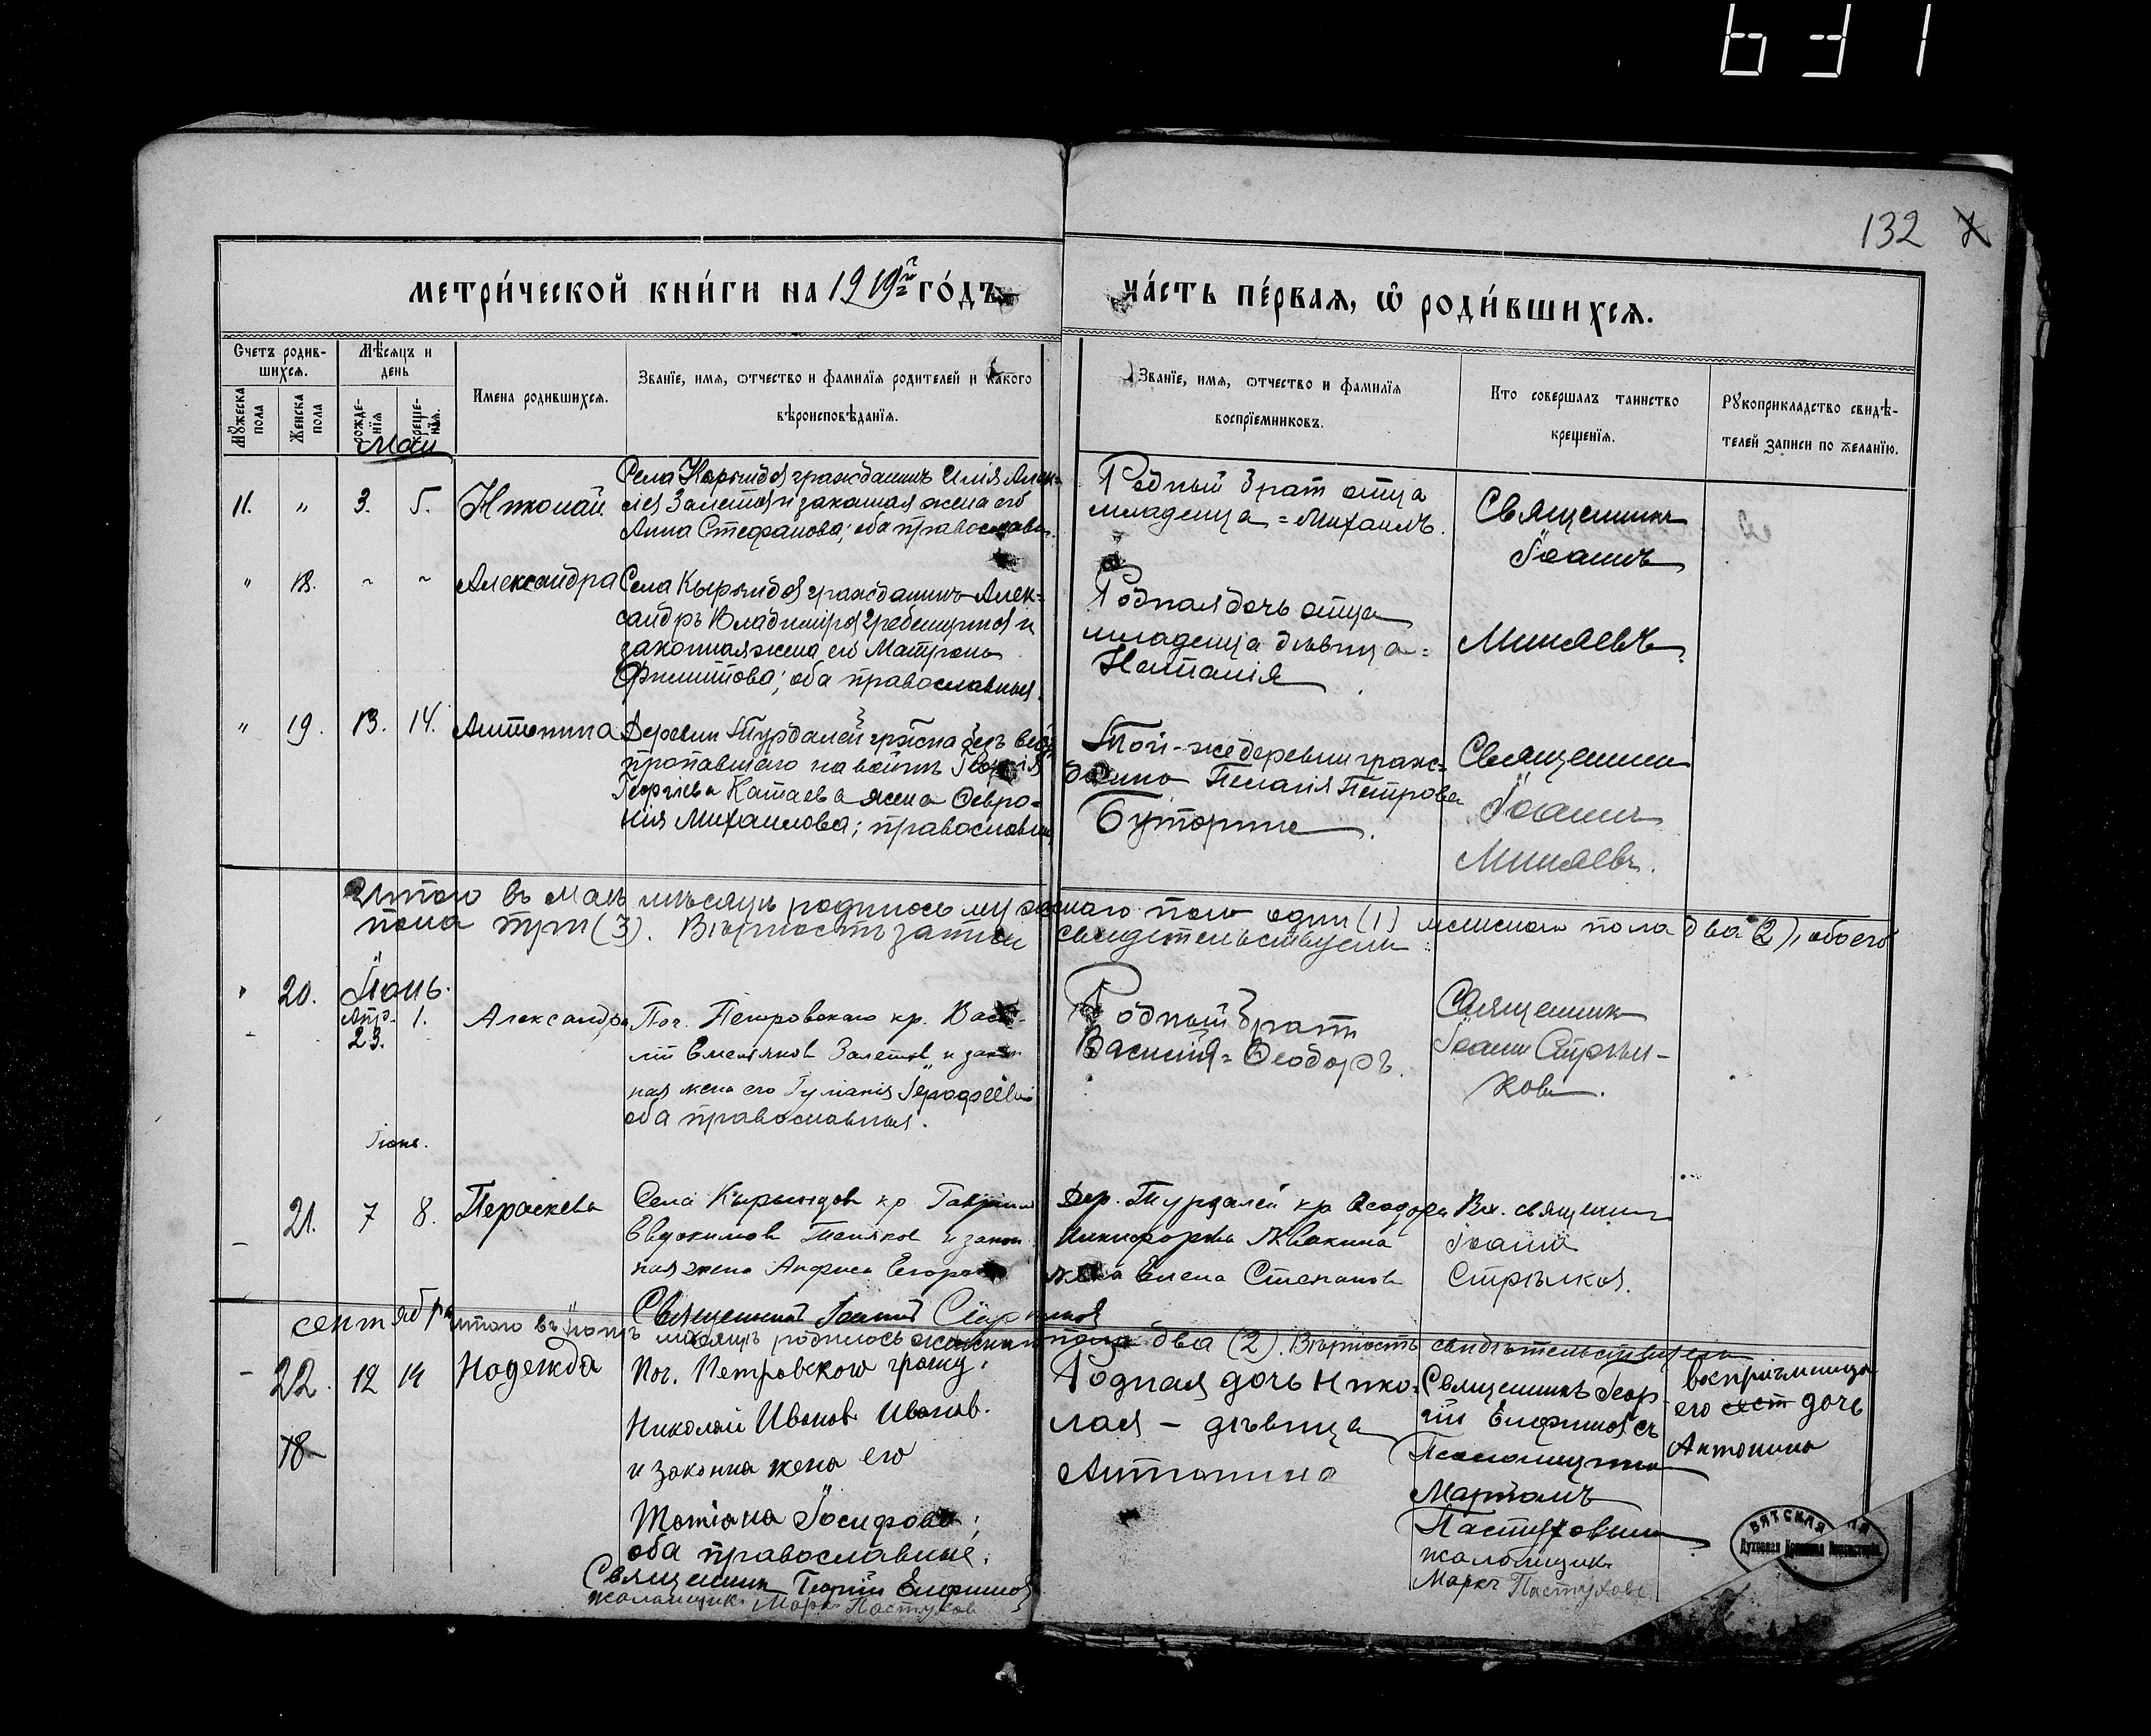 631
132
метри́ческой кни́ги на 1919 г. го́дъ
ча́сть пе́рвая, ѿ роди́вшихся.
Счетъ родив-
шихся.
Мѣсяцъ и
день
Мужеска
пола
Женска
пола
рожде-
нія
креще-
нія.
Имена родившихся.
Званіе, имя, отчество и фамилія родителей и какого
вѣроисповѣданія.
Званіе, имя, отчество и фамилія
воспріемниковъ.
Кто совершалъ таинство
крещенія.
Рукоприкладство свидѣ-
телей записи по желанію.
Май
11. " 3. 5. Николай.
гражданинъ Илія
и законная жена его
Анна Стефанова; оба православн.
Родный братъ отца
младенца = Михаилъ.
Священникъ
Іоаннъ
Минаевъ.
" 18. ~ ~ Александра
Села гражданинъ Алек-
сандръ Владиміровъ и
законная жена его Матрона
Филиппова; оба православныя.
Родная дочь отца
младенца дѣвица =
Наталія
" 19. 13. 14. Антонина
Деревни Турдалей безъ вѣсти
пропавшаго на войнѣ Георгія
Георгіева Катаева жена Февро-
нія Михаилова; православныя
Той-же деревни граж-
данка Пелагія Петрова
Буторина.
Священникъ
Іоаннъ
Минаевъ.
Итого въ маѣ мѣсяцѣ родилось мужскаго пола одинъ (1) женскаго пола два (2), обоего
пола три (3). Вѣрность записи свидѣтельствуемъ
" 20. Іюнь.
Апр. 23. 1. Александра
Поч. Петровскаго кр. Васи-
лій Емельяновъ и закон-
ная жена его
оба православныя.
Родный братъ
Василія = Ѳеодоръ.
Священникъ
Іоаннъ Стрѣл-
ковъ.
Іюнь.
21. 7 8. Параскева
Села кр. Гавріилъ
Евдокимовъ и закон
ная жена Анфиса Егорова
Дер. Турдалей кр. Ѳеодора
Никифорова
жена Елена Степанова
священникъ
Іоаннъ
Стрѣлковъ.
Священникъ Іоаннъ Стрѣлковъ
Итого въ Іюнѣ мѣсяцѣ родилось женскаго пола два (2). Вѣрность свидѣтельствуемъ
сентября
- 22. 12 14 Надежда
18
Поч. Петровскаго гражд.
Николай Ивановъ Ивановъ
и законна жена его
Татіана Іосифова;
оба православные.
Родная дочь Нико-
лая - дѣвица
Антонина
Священникъ Геор-
гій Елфимовъ съ
Псаломщикомъ
Маркомъ
Пастуховымъ
псаломщикъ
Маркъ Пастуховъ
воспріемница
его сест дочь
Антонина
Священникъ Георгій Елфимовъ
псаломщикъ Маркъ Пастуховъ
ВЯТСКАЯ
Духовная Консисторія